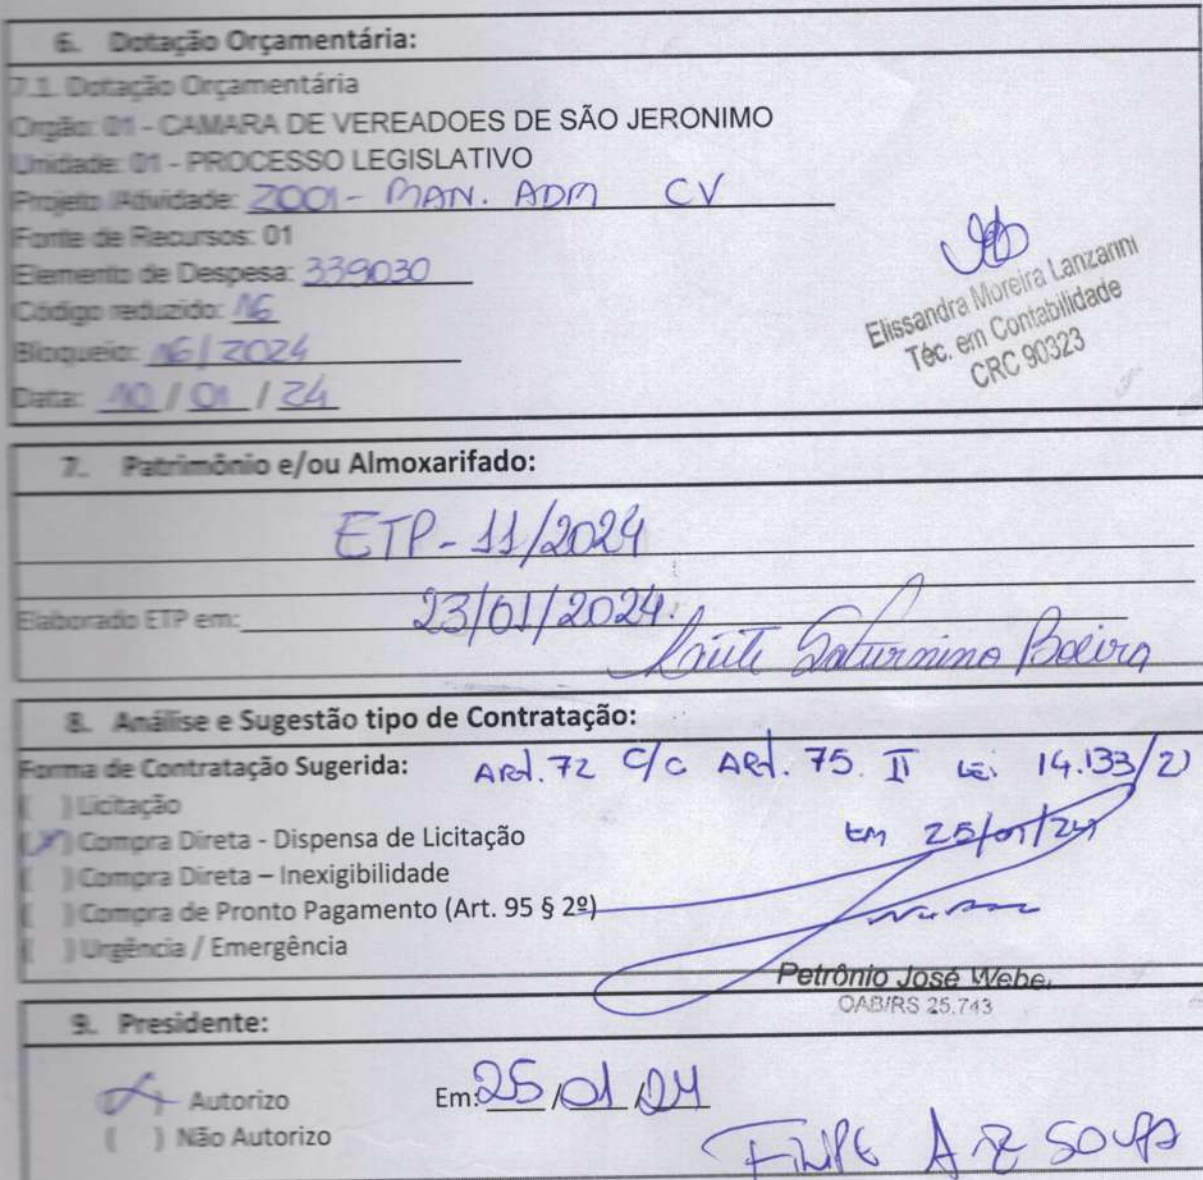 6. Dotação Orçamentária:
7.1. Dotação Orçamentária
Orgão: 01 - CAMARA DE VEREADOES DE SÃO JERONIMO
Unidade: 01 - PROCESSO LEGISLATIVO
Projeto /Atividade: 2001 - MAN. ADM CV
Fonte de Recursos: 01
Elemento de Despesa: 339030
Código reduzido: 16
Bloqueio: 16/2024
Data: 10/01/24
Elissandra Moreira Lanzarini
Téc. em Contabilidade
CRC 90323
7. Patrimônio e/ou Almoxarifado:
ETP - 11/2024
Elaborado ETP em: 23/01/2024.
Saturnino Boeira
8. Análise e Sugestão tipo de Contratação:
Forma de Contratação Sugerida: Art. 72 c/c Art. 75. II Lei 14.133/21
( ) Licitação
(X) Compra Direta - Dispensa de Licitação
em 25/01/24
( ) Compra Direta – Inexigibilidade
( ) Compra de Pronto Pagamento (Art. 95 § 2º)
( ) Urgência / Emergência
Petrônio José Webe
OAB/RS 25.743
9. Presidente:
(X) Autorizo Em: 25/01/24
( ) Não Autorizo
FILIPE A DE SOUZA